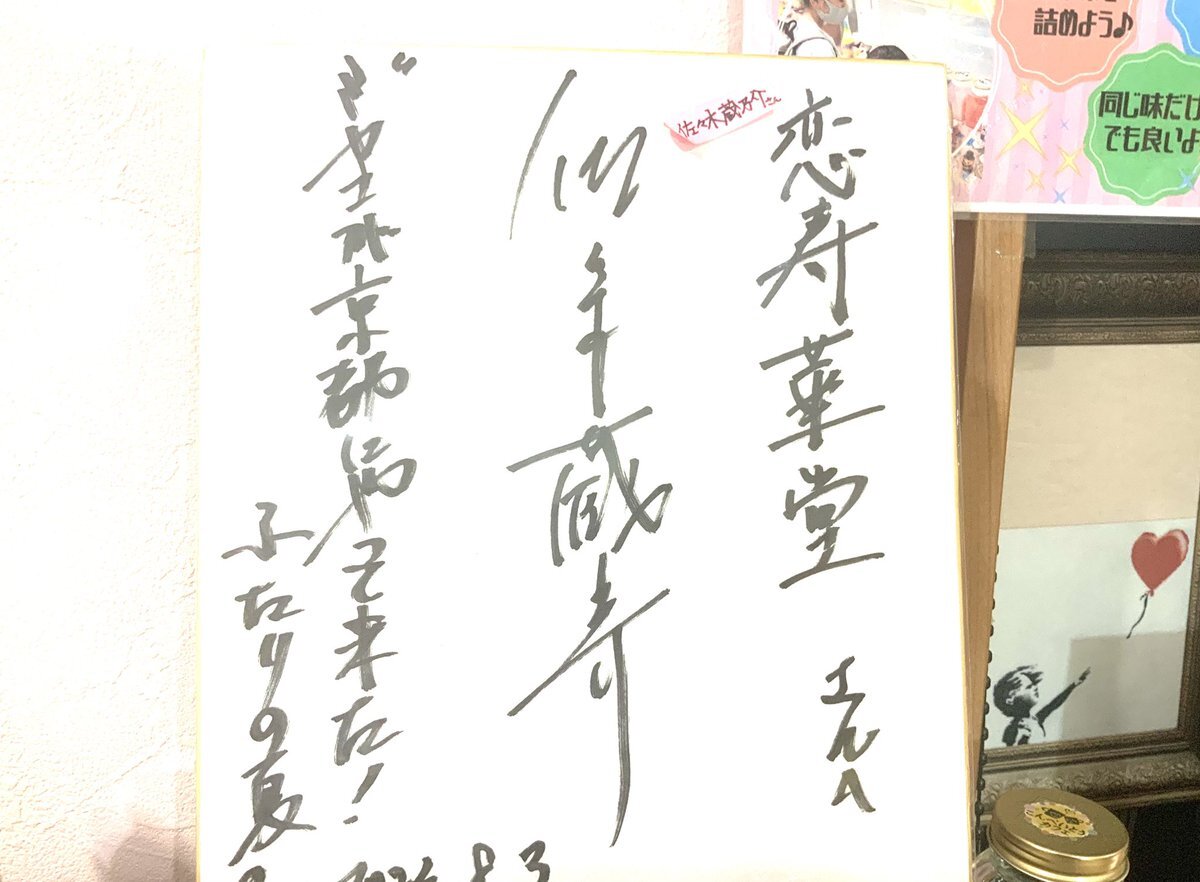 恋寿華堂 さんへ
佐々木蔵之介さん
佐々木蔵之介
京都にやって来た!
ふたりの夏
8.3
詰めよう♪
同じ味だけ
でも良いよ